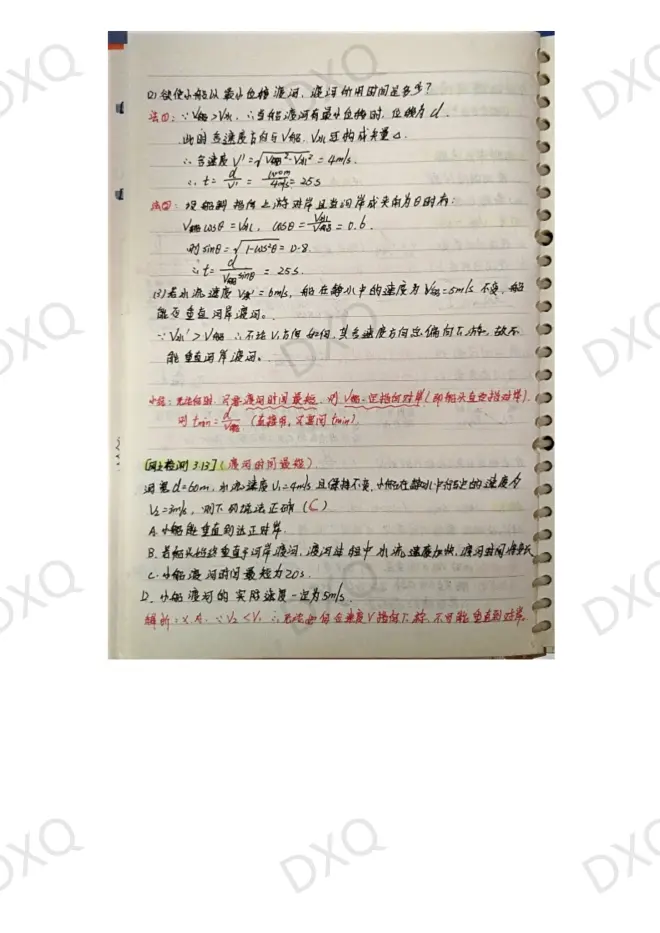 (2)欲使小船以最小位移渡河,渡河所用时间是多少?
法①:∵V船>V水,∴当船渡河有最小位移时,位移为d.
此时合速度方向与V船、V水还构成矢量△.
∴合速度V'=√(V船²-V水²)=4m/s.
∴t=d/V'=100m/4m/s=25s
法②:设船斜指向上游对岸且与河岸成夹角为θ时有:
V船cosθ=V水,cosθ=V水/V船=0.6.
则sinθ=√(1-cos²θ)=0.8.
∴t=d/V船sinθ=25s.
(3)若水流速度V水'=6m/s,船在静水中的速度为V船=5m/s不变,船
能否垂直河岸渡河。
∵V水'>V船 ∴不论V船方向如何,其合速度方向总偏向下游,故不
能垂直河岸渡河。
小结:无论何时,只要渡河时间最短,则V船一定指向对岸(即船头垂直指对岸).
则tmin=d/V船(直接用,只要问tmin).
[网上检测3.13](渡河时间最短).
河宽d=60m,水流速度V₁=4m/s且保持不变,小船在静水中行驶的速度为
V₂=3m/s,则下列说法正确(C)
A.小船能垂直到达正对岸.
B.若船头始终垂直于河岸渡河,渡河过程中水流速度加快,渡河时间将变长
C.小船渡河时间最短为20s.
D.小船渡河的实际速度一定为5m/s.
解析:×A.∵V₂<V₁ ∴无论如何合速度V指向下游,不可能垂直到对岸.
DXQ
DXQ
DXQ
DXQ
DXQ
DXQ
DXQ
DXQ
DXQ
DXQ
DXQ
DXQ